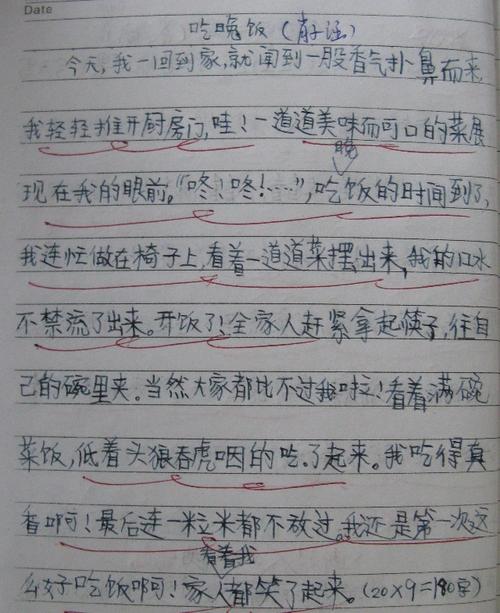 Date
吃晚饭（肖子涵）
今天，我一回到家，就闻到一股香气扑鼻而来
我轻轻推开厨房门，哇！一道道美味而可口的菜展
晚
现在我的眼前。“咚！咚！……”，吃饭的时间到了，
我连忙做在椅子上，看着一道道菜摆出来，我的口水
不禁流了出来。开饭了！全家人赶紧拿起筷子，往自
己的碗里夹。当然大家都比不过我啦！看着满碗
菜饭，低着头狼吞虎咽的吃了起来。我吃得真
香啊！最后连一粒米都不放过。我还是第一次这
看着我
么好吃饭啊！家人都笑了起来。（20×9=180字）